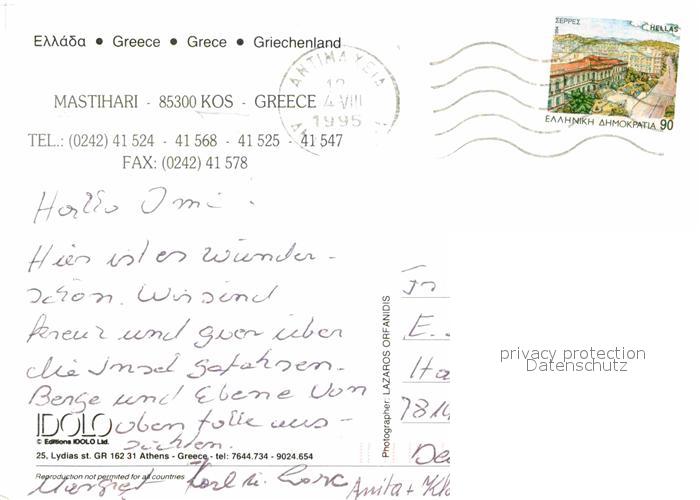 Ελλάδα • Greece • Grece • Griechenland
ΣΕΡΡΕΣ HELLAS
ΕΛΛΗΝΙΚΗ ΔΗΜΟΚΡΑΤΙΑ 90
ΑΝΤΙΜΑΧΕΙΑ
4 VIII
1995
MASTIHARI - 85300 KOS - GREECE
TEL.: (0242) 41 524 - 41 568 - 41 525 - 41 547
FAX: (0242) 41 578
Hallo Omi.
Hier ist es wunder-
schön. Wir sind
kreuz und quer über
die Insel gefahren.
Berge und Ebene von
oben tolle Aus-
sichten.
IDOLO
© Editions IDOLO Ltd.
25, Lydias st. GR 162 31 Athens - Greece - tel: 7644.734 - 9024.654
Reproduction not permited for all countries
Margret Karl
Anita +
Photographer: LAZAROS ORFANIDIS
E.
Ha
De
privacy protection
Datenschutz